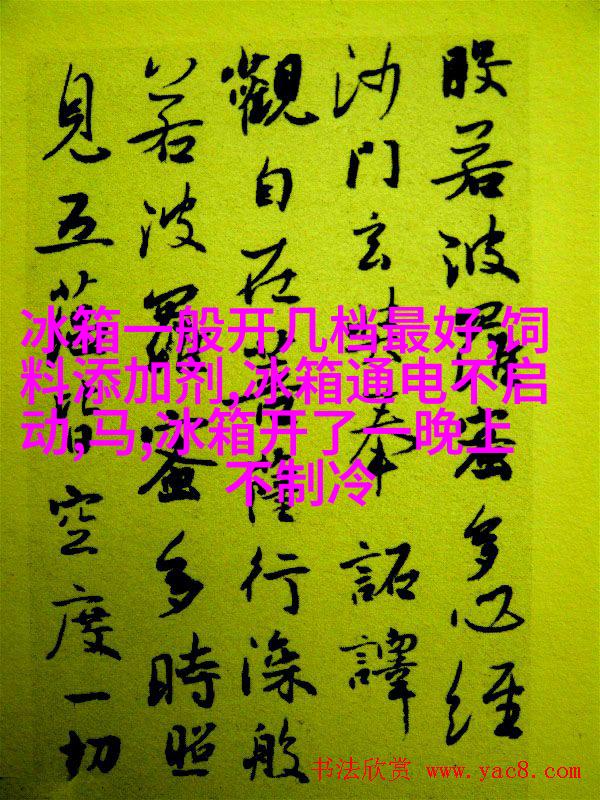 般若波羅蜜多心經
沙門玄奘奉 詔譯
觀自在菩薩行深般
若波羅蜜多時照
見五蘊皆空度一切
冰箱一般开几档最好,饲
料添加剂,冰箱通电不启
动,马,冰箱开了一晚上
不制冷
书法欣赏 www.yac8.com